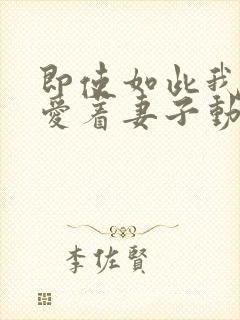 即使如此我
愛着妻子動
李佐賢